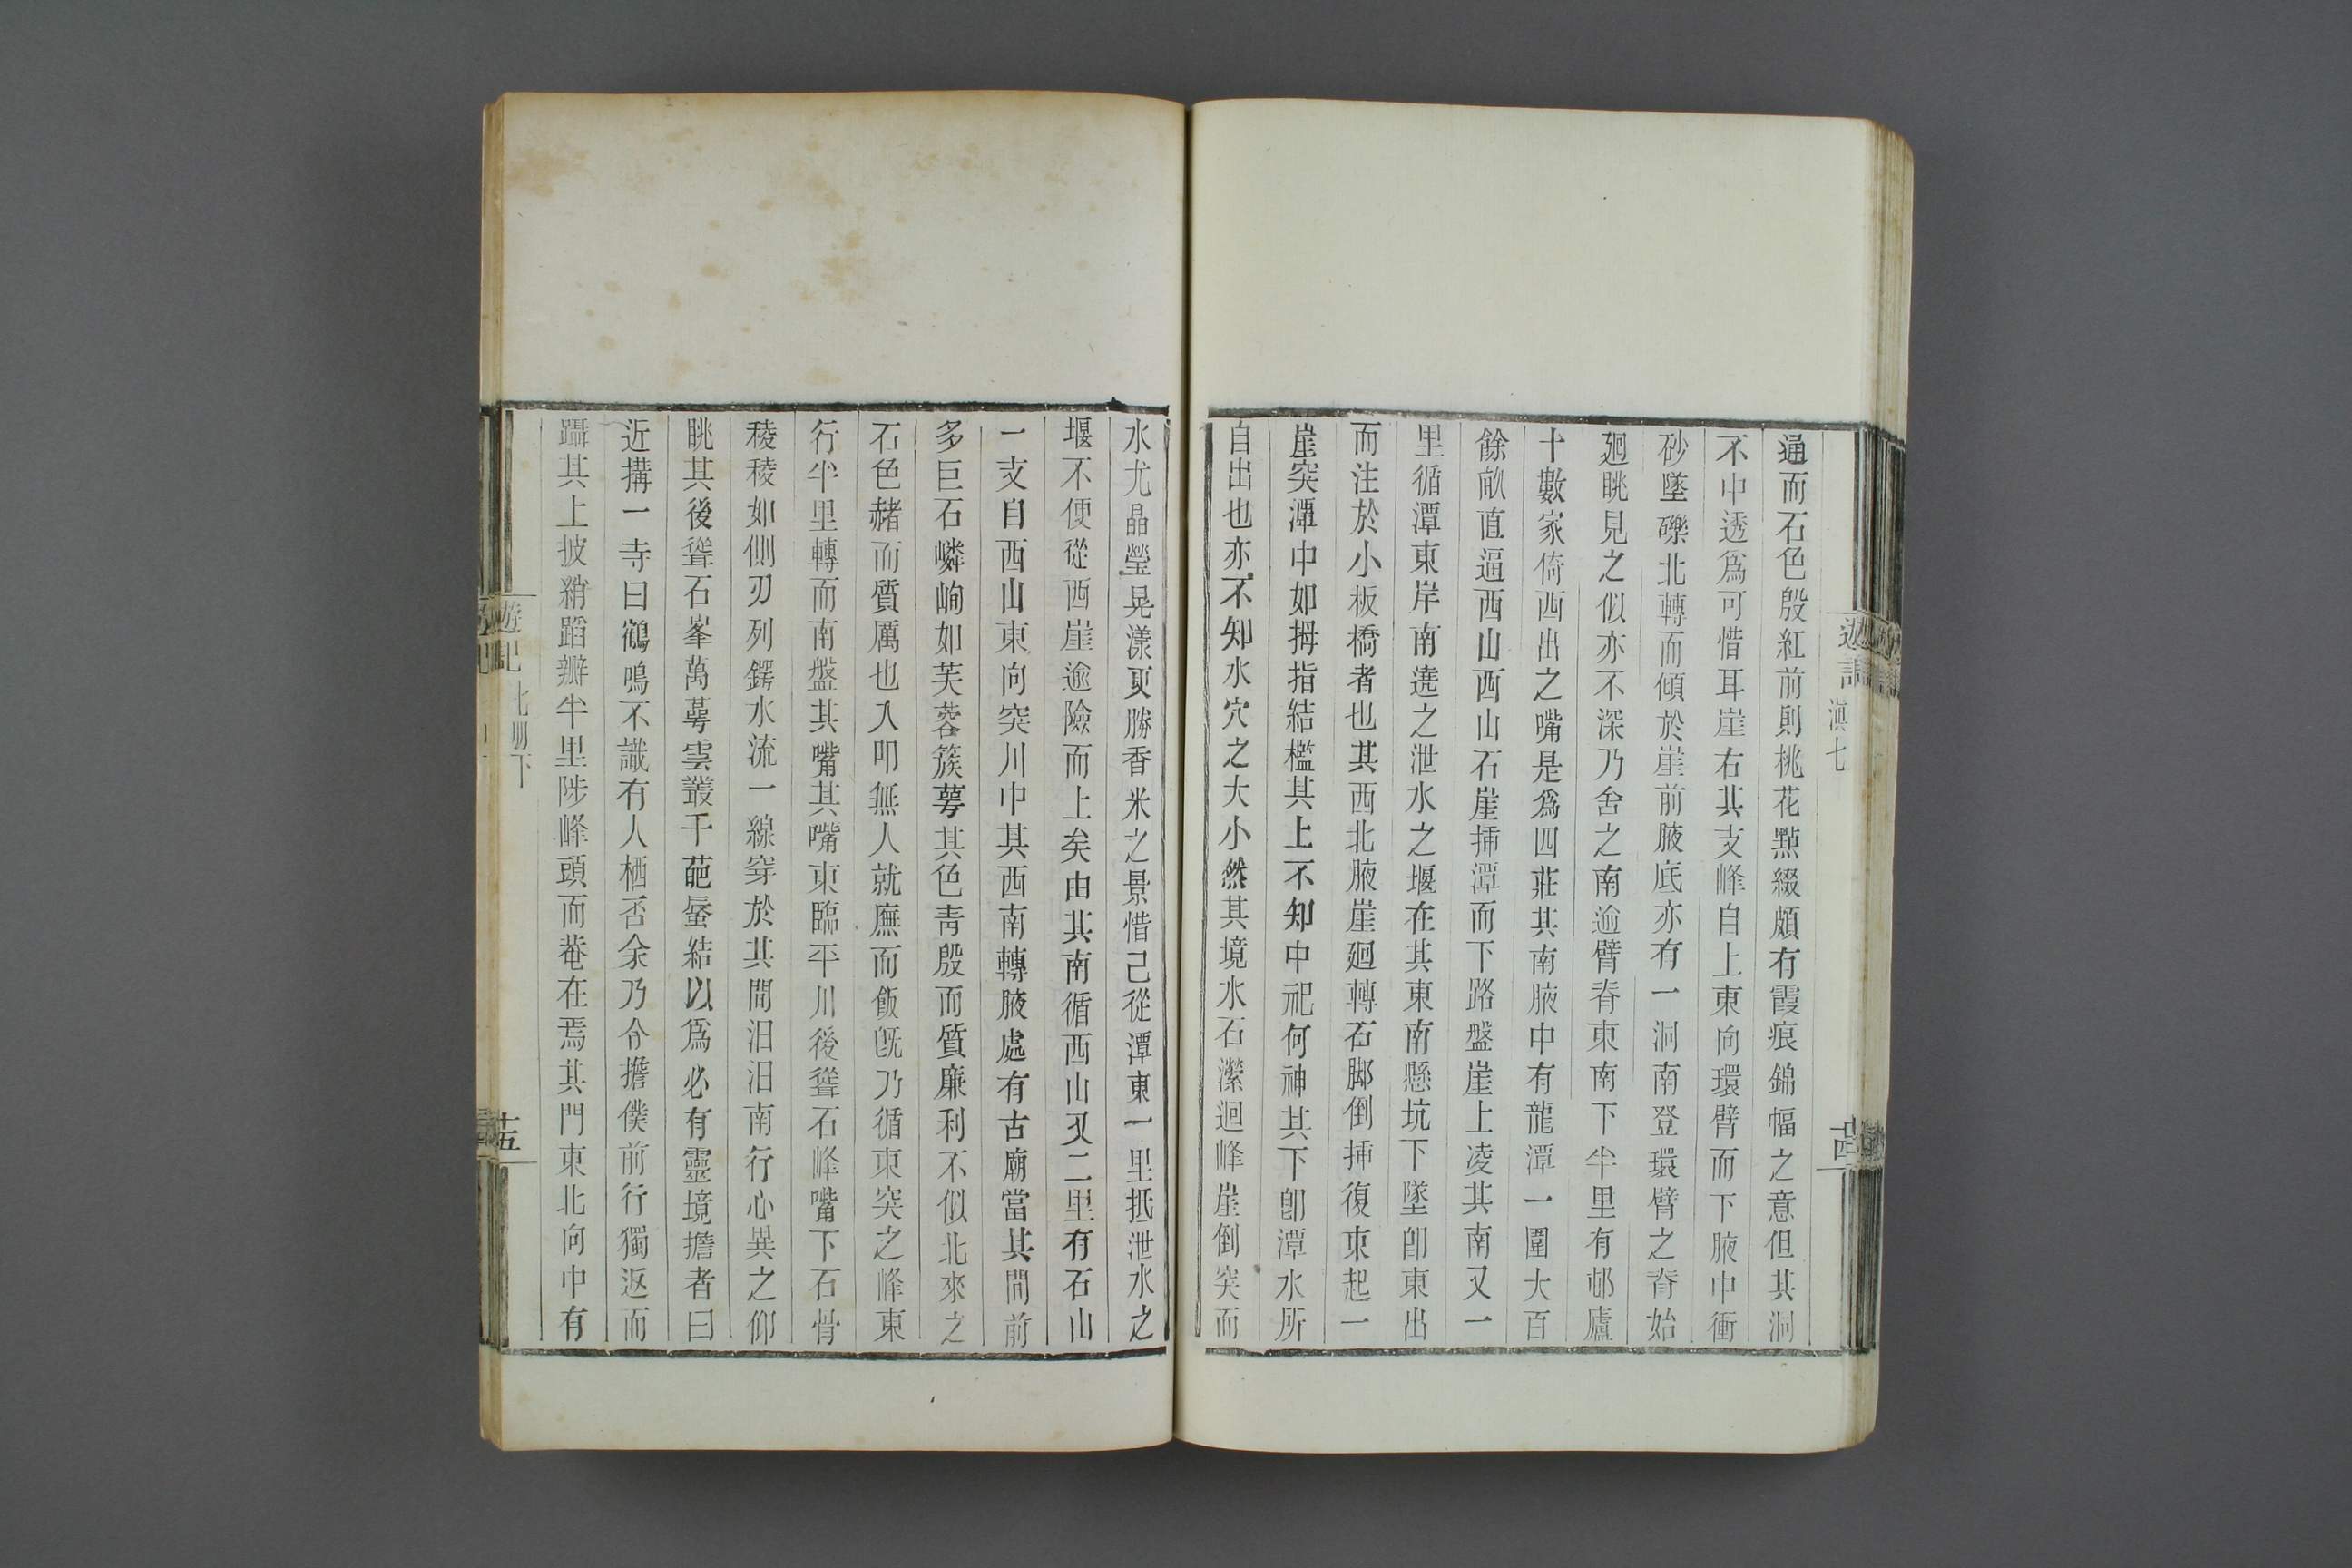 遊記
滇七
十四
通而石色殷紅前則桃花㸃綴頗有霞痕錦幅之意但其洞
不中透爲可惜耳崖右其支峰自上東向環臂而下腋中衝
砂墜礫北轉而傾於崖前腋底亦有一洞南登環臂之脊始
廻眺見之似亦不深乃舍之南逾臂脊東南下半里有邨廬
十數家倚西出之嘴是爲四莊其南腋中有龍潭一圍大百
餘畝直逼西山西山石崖揷潭而下路盤崖上凌其南又一
里循潭東岸南遶之泄水之堰在其東南懸坑下墜卽東出
而注於小板橋者也其西北腋崖廻轉石脚倒揷復東起一
崖突潭中如拇指結檻其上不知中祀何神其下卽潭水所
自出也亦不知水穴之大小然其境水石瀠迴峰崖倒突而
水尤晶瑩晃漾更勝香米之景惜己從潭東一里抵泄水之
堰不便從西崖逾險而上矣由其南循西山又二里有石山
一支自西山東向突川中其西南轉腋處有古廟當其間前
多巨石嶙峋如芙蓉簇萼其色青殷而質廉利不似北來之
石色赭而質厲也入叩無人就廡而飯旣乃循東突之峰東
行半里轉而南盤其嘴其嘴東臨平川後聳石峰嘴下石骨
稜稜如側刃列鍔水流一線穿於其間汨汨南行心異之仰
眺其後聳石峯萬萼雲叢千葩蜃結以爲必有靈境擔者曰
近搆一寺曰鶴鳴不識有人栖否余乃令擔僕前行獨返而
躡其上披綃蹈瓣半里陟峰頭而菴在焉其門東北向中有
遊記
七册下
十五